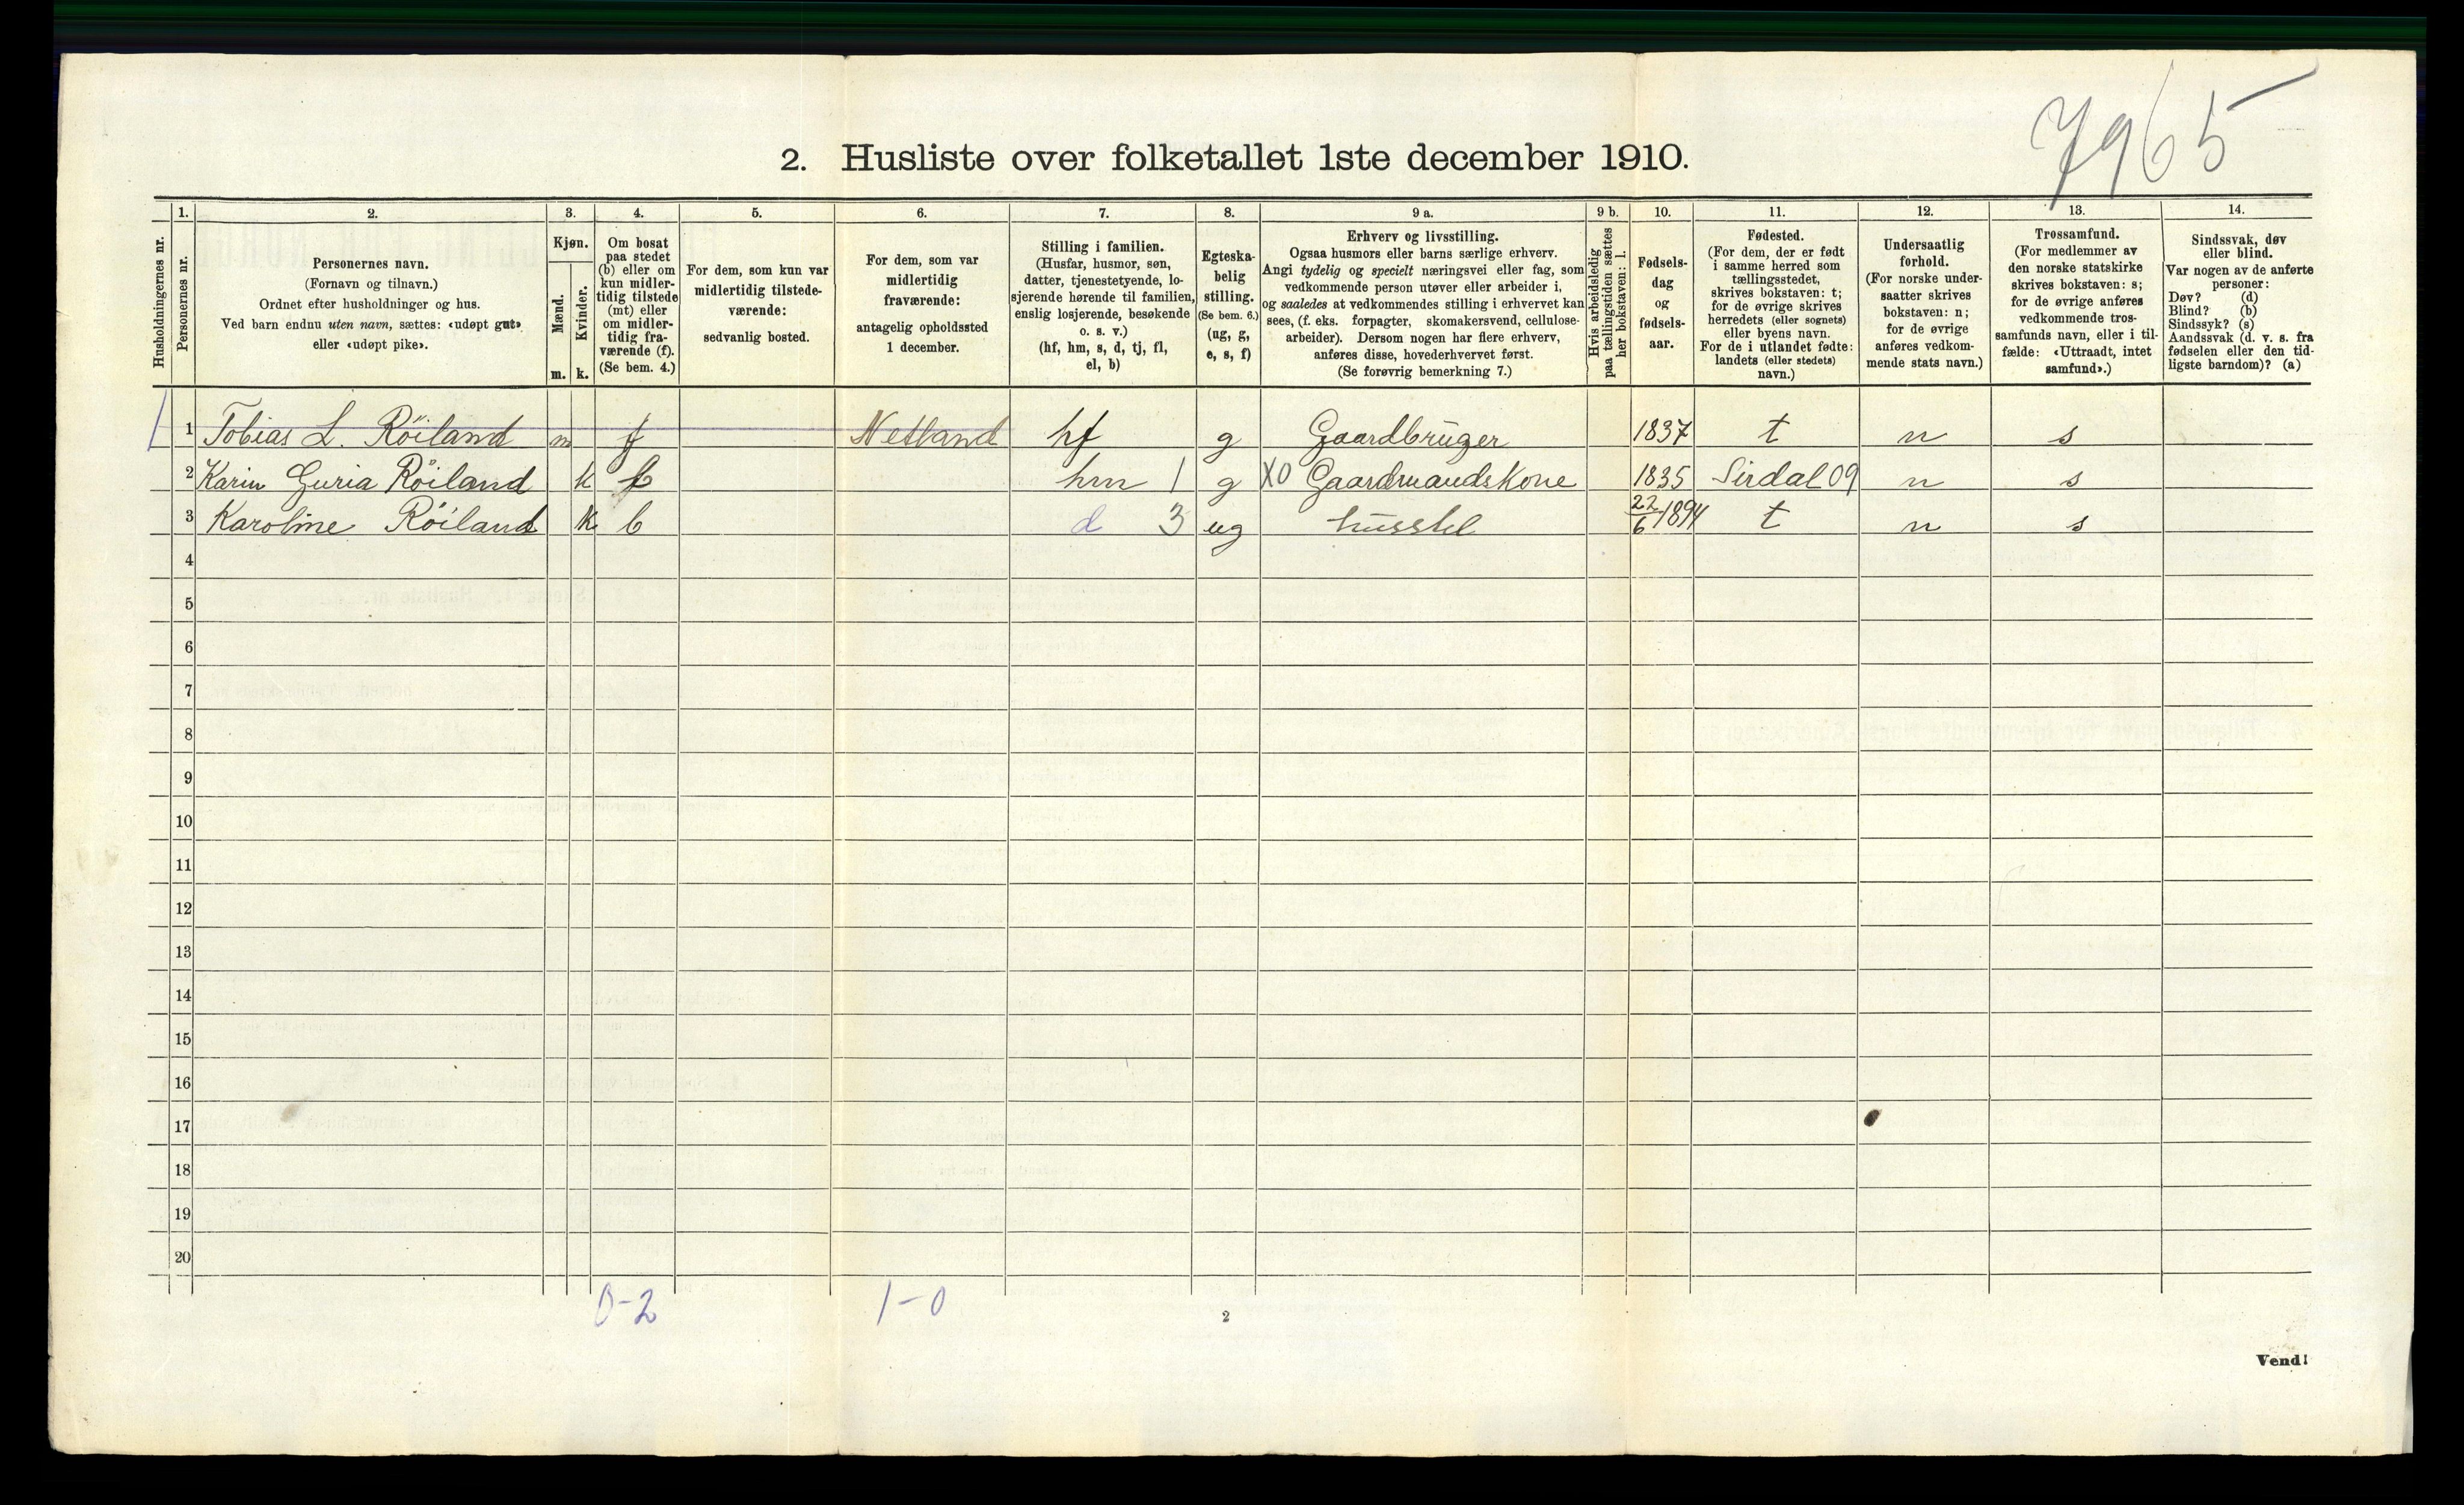 7965
2. Husliste over folketallet 1ste december 1910.
Husholdningernes nr.
1.
Personernes nr.
2.
Personernes navn.
(Fornavn og tilnavn.)
Ordnet efter husholdninger og hus.
Ved barn endnu uten navn, sættes: «udøpt gut»
eller «udøpt pike».
3.
Kjøn.
Mænd.
Kvinder.
m. k.
4.
Om bosat
paa stedet
(b) eller om
kun midler-
tidig tilstede
(mt) eller
om midler-
tidig fra-
værende (f).
(Se bem. 4.)
5.
For dem, som kun var
midlertidig tilstede-
værende:
sedvanlig bosted.
6.
For dem, som var
midlertidig
fraværende:
antagelig opholdssted
1 december.
7.
Stilling i familien.
(Husfar, husmor, søn,
datter, tjenestetyende, lo-
sjerende hørende til familien,
enslig losjerende, besøkende
o. s. v.)
(hf, hm, s, d, tj, fl,
el, b)
8.
Egteska-
belig
stilling.
(Se bem. 6.)
(ug, g,
e, s, f)
9 a.
Erhverv og livsstilling.
Ogsaa husmors eller barns særlige erhverv.
Angi tydelig og specielt næringsvei eller fag, som
vedkommende person utøver eller arbeider i,
og saaledes at vedkommendes stilling i erhvervet kan
sees, (f. eks. forpagter, skomakersvend, cellulose-
arbeider). Dersom nogen har flere erhverv,
anføres disse, hovederhvervet først.
(Se forøvrig bemerkning 7.)
9 b.
Hvis arbeidsledig
paa tællingstiden sættes
her bokstaven: l.
10.
Fødsels-
dag
og
fødsels-
aar.
11.
Fødested.
(For dem, der er født
i samme herred som
tællingsstedet,
skrives bokstaven: t;
for de øvrige skrives
herredets (eller sognets)
eller byens navn.
For de i utlandet fødte:
landets (eller stedets)
navn.)
12.
Undersaatlig
forhold.
(For norske under-
saatter skrives
bokstaven: n;
for de øvrige
anføres vedkom-
mende stats navn.)
13.
Trossamfund.
(For medlemmer av
den norske statskirke
skrives bokstaven: s;
for de øvrige anføres
vedkommende tros-
samfunds navn, eller i til-
fælde: «Uttraadt, intet
samfund».)
14.
Sindssvak, døv
eller blind.
Var nogen av de anførte
personer:
Døv? (d)
Blind? (b)
Sindssyk? (s)
Aandssvak (d. v. s. fra
fødselen eller den tid-
ligste barndom)? (a)
1 1 Tobias L. Röiland m f Netland hf g Gaardbruger 1837 t n s
2 Karin Guria Röiland k b hm 1 g X0 Gaardmandskone 1835 Sirdal 09 n s
3 Karoline Röiland k b d 3 ug husstel 22/6 1894 t n s
4
5
6
7
8
9
10
11
12
13
14
15
16
17
18
19
20
0-2 1-0
2
Vend!